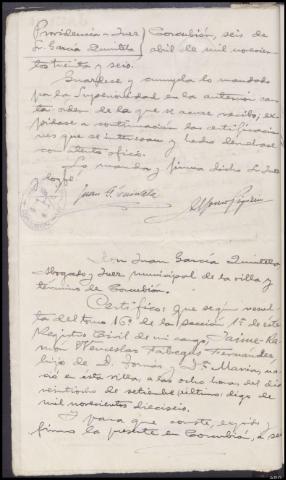 Providencia = Juez } Corcubión, seis de
Sr. García Quintela } abril de mil novecien-
tos treinta y seis.
Guárdese y cumpla lo mandado
por la Superioridad en la anterior car-
ta orden de la que se acuse recibo; ex-
pídase a continuación las certificacio-
nes que se interesan y hecho devuélvase
con atento oficio.
Lo manda y firma dicho Sr. Juez
y doy fé.
Juan G. Quintela
Don Juan García Quintela
Abogado y Juez municipal de la villa y
término de Corcubión.
Certifico: Que según resul-
ta del tomo 16º de la sección 1ª de este
Registro Civil de mi cargo, Jaime-Ra-
món Wenceslao Fabregas Fernández
hijo de D. Tomás y Dª María, na-
ció en esta villa, a las ocho horas del día
veintiocho de setiembre último digo de
mil novecientos dieciseis.
Y para que conste, expido y
firmo la presente en Corcubión, a seis